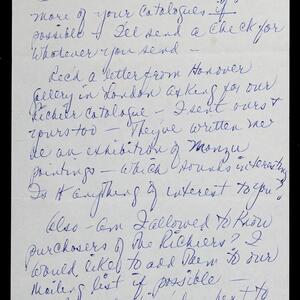 more of your catalogues if
possible – I'll send a check for
whatever you send –
Rec'd a letter from Hanover
Gallery in London asking for our
Richier Catalogue – I sent ours &
yours too – They've written me
re an exhibition of Manzu
paintings – which sounds interesting
Is it anything of interest to you?
Also – am I allowed to know
purchasers of the Richiers? I
would like to add them to our
mailing list if possible –